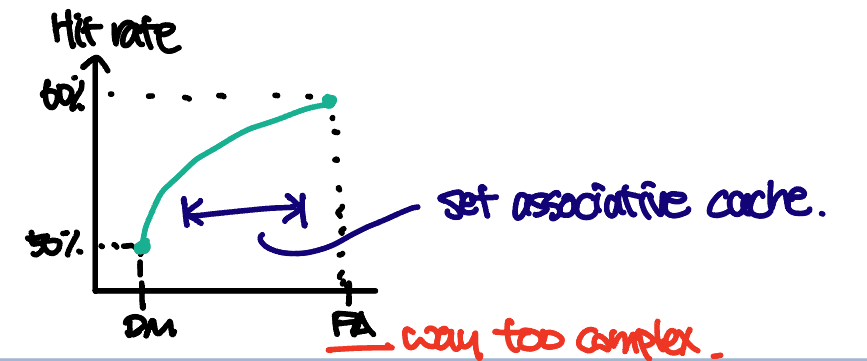 Hit rate
60%
set associative cache.
50%
DM
FA way too complex.